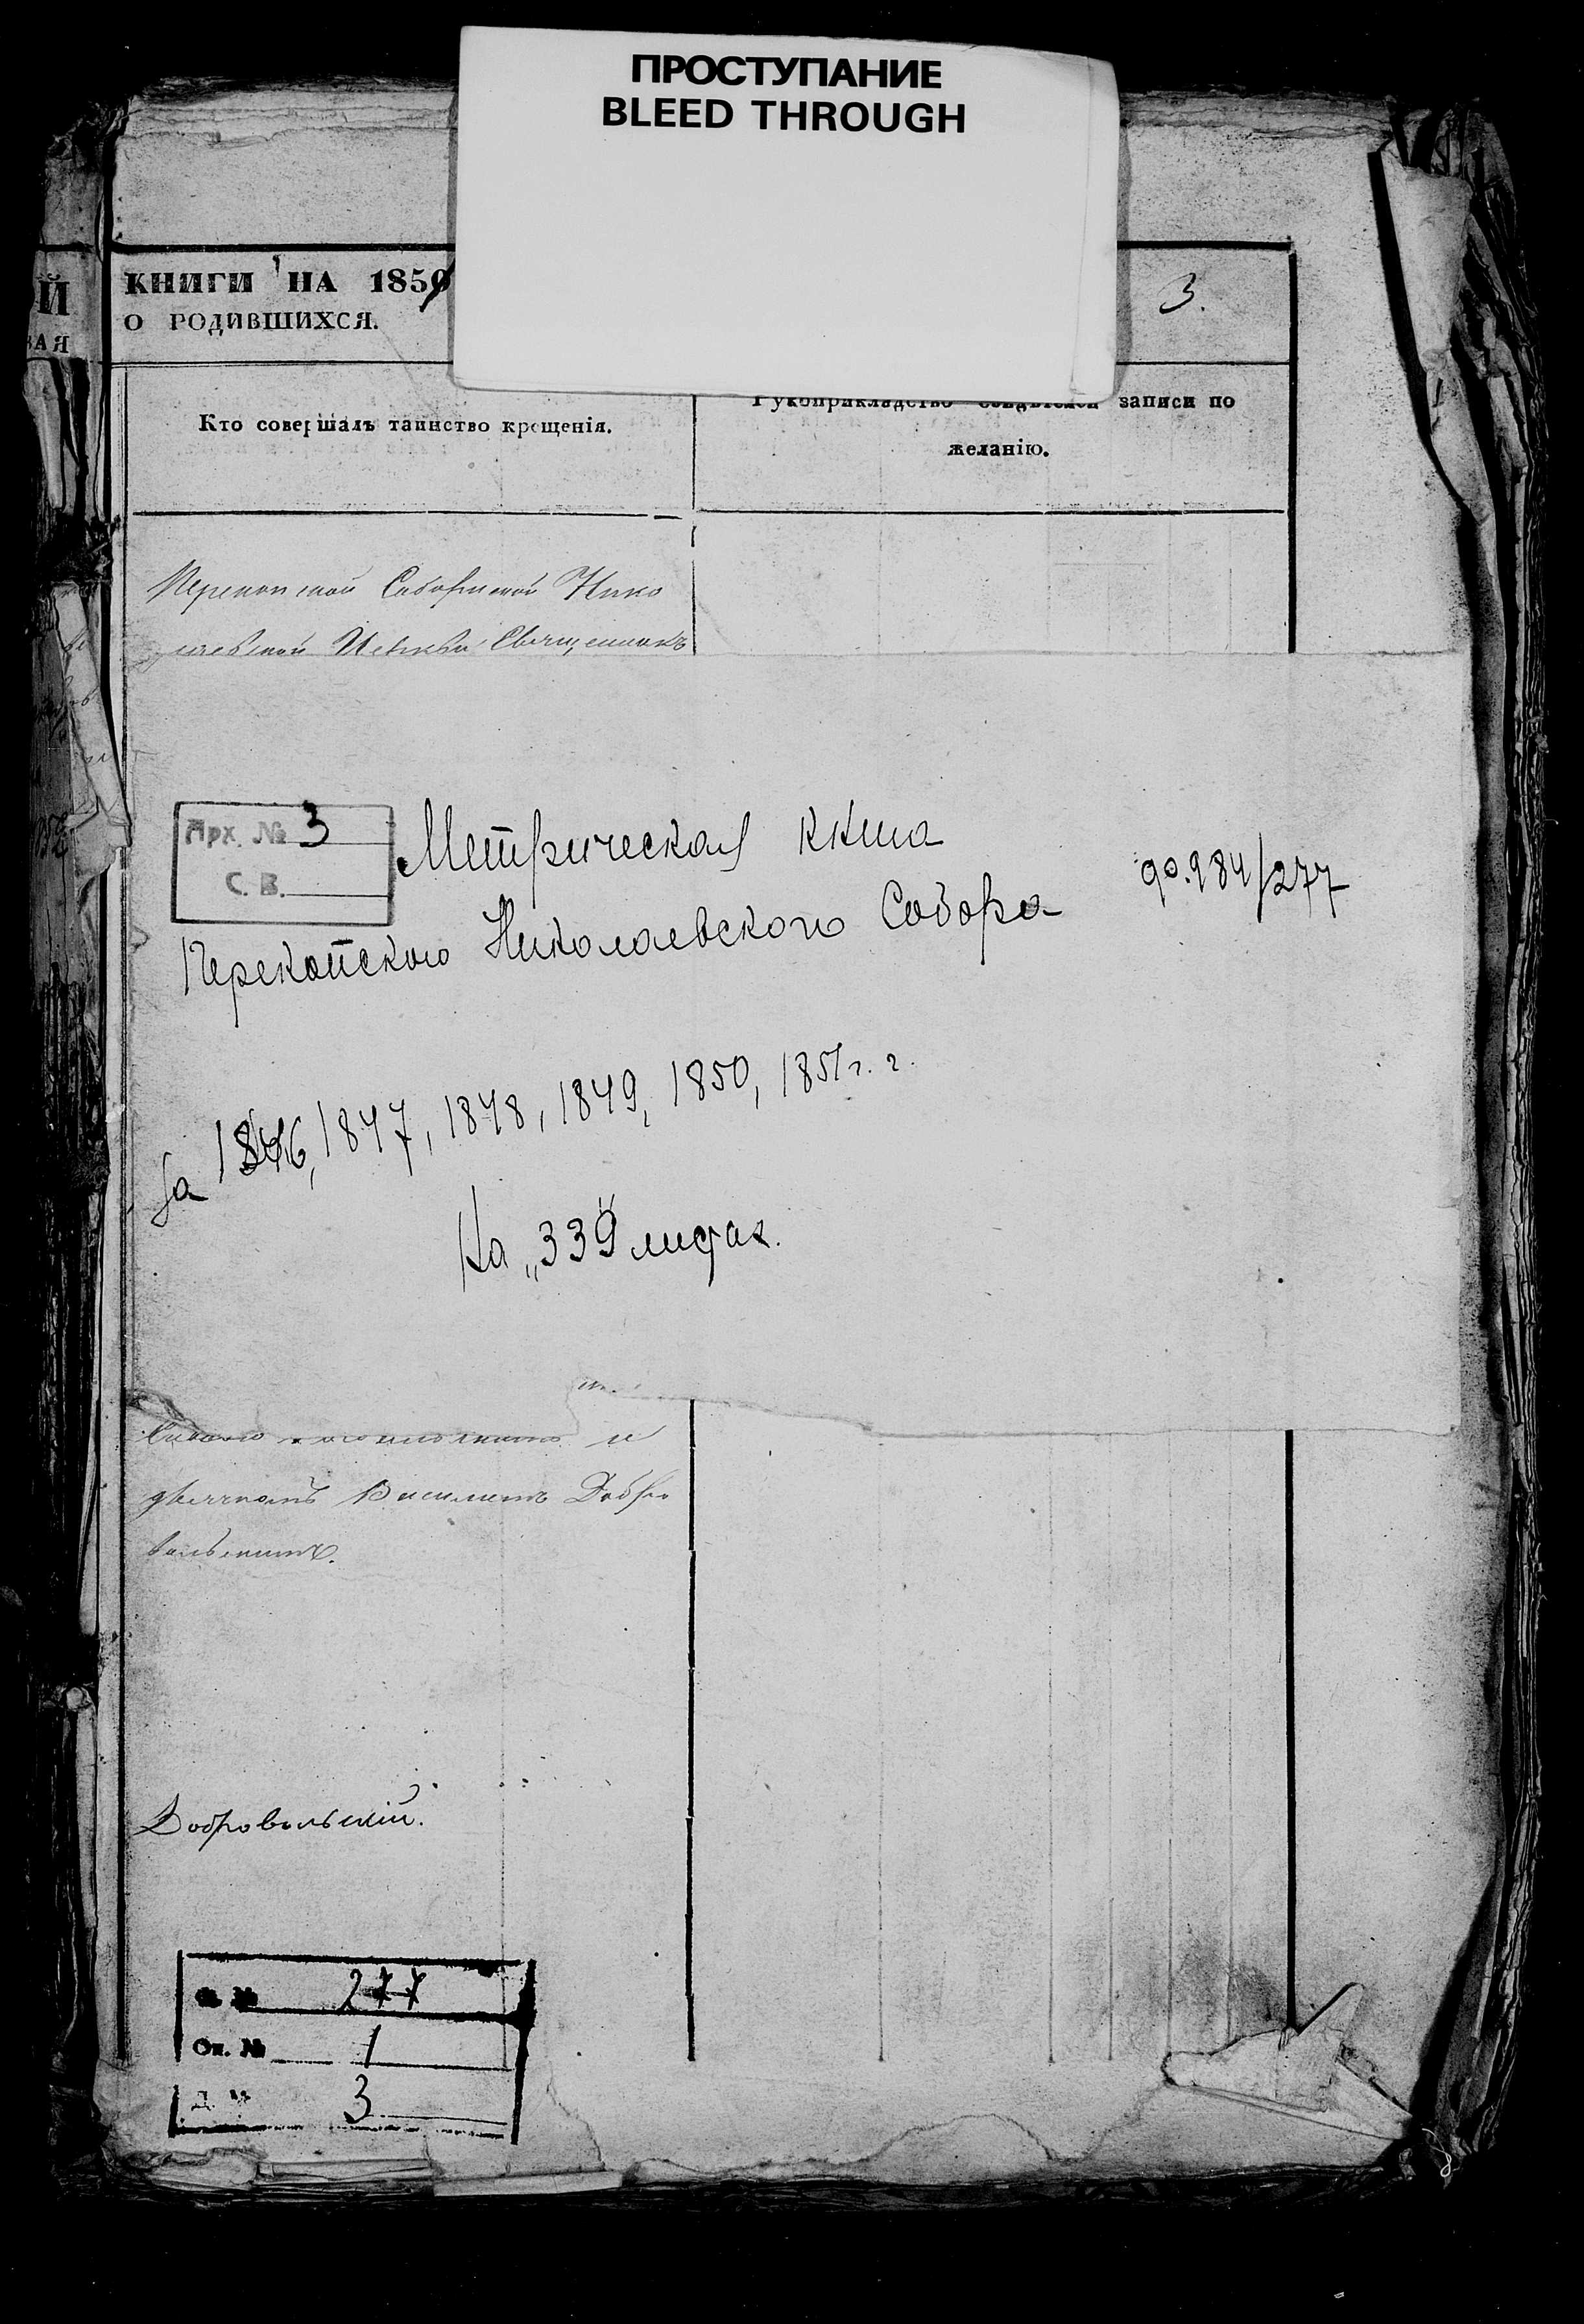 ПРОСТУПАНИЕ
BLEED THROUGH
Й
ВАЯ
КНИГИ НА 1850
О РОДИВШИХСЯ.
3.
Кто совершалъ таинство крещенія.
Рукоприкладство свидѣтелей записи по
желанію.
Перекопской Соборной Нико
лаевской Церкви Священникъ
Арх. № 3
С. В.
Метрическая книга
Перекопского Николаевского Собора
фо. 984/277
За 1846, 1847, 1848, 1849, 1850, 1851 г. г.
На „339" листах.
и
дьячкомъ Василиемъ Добро
вольскимъ.
Добровольскій.
277
Оп. № 1
Д. № 3